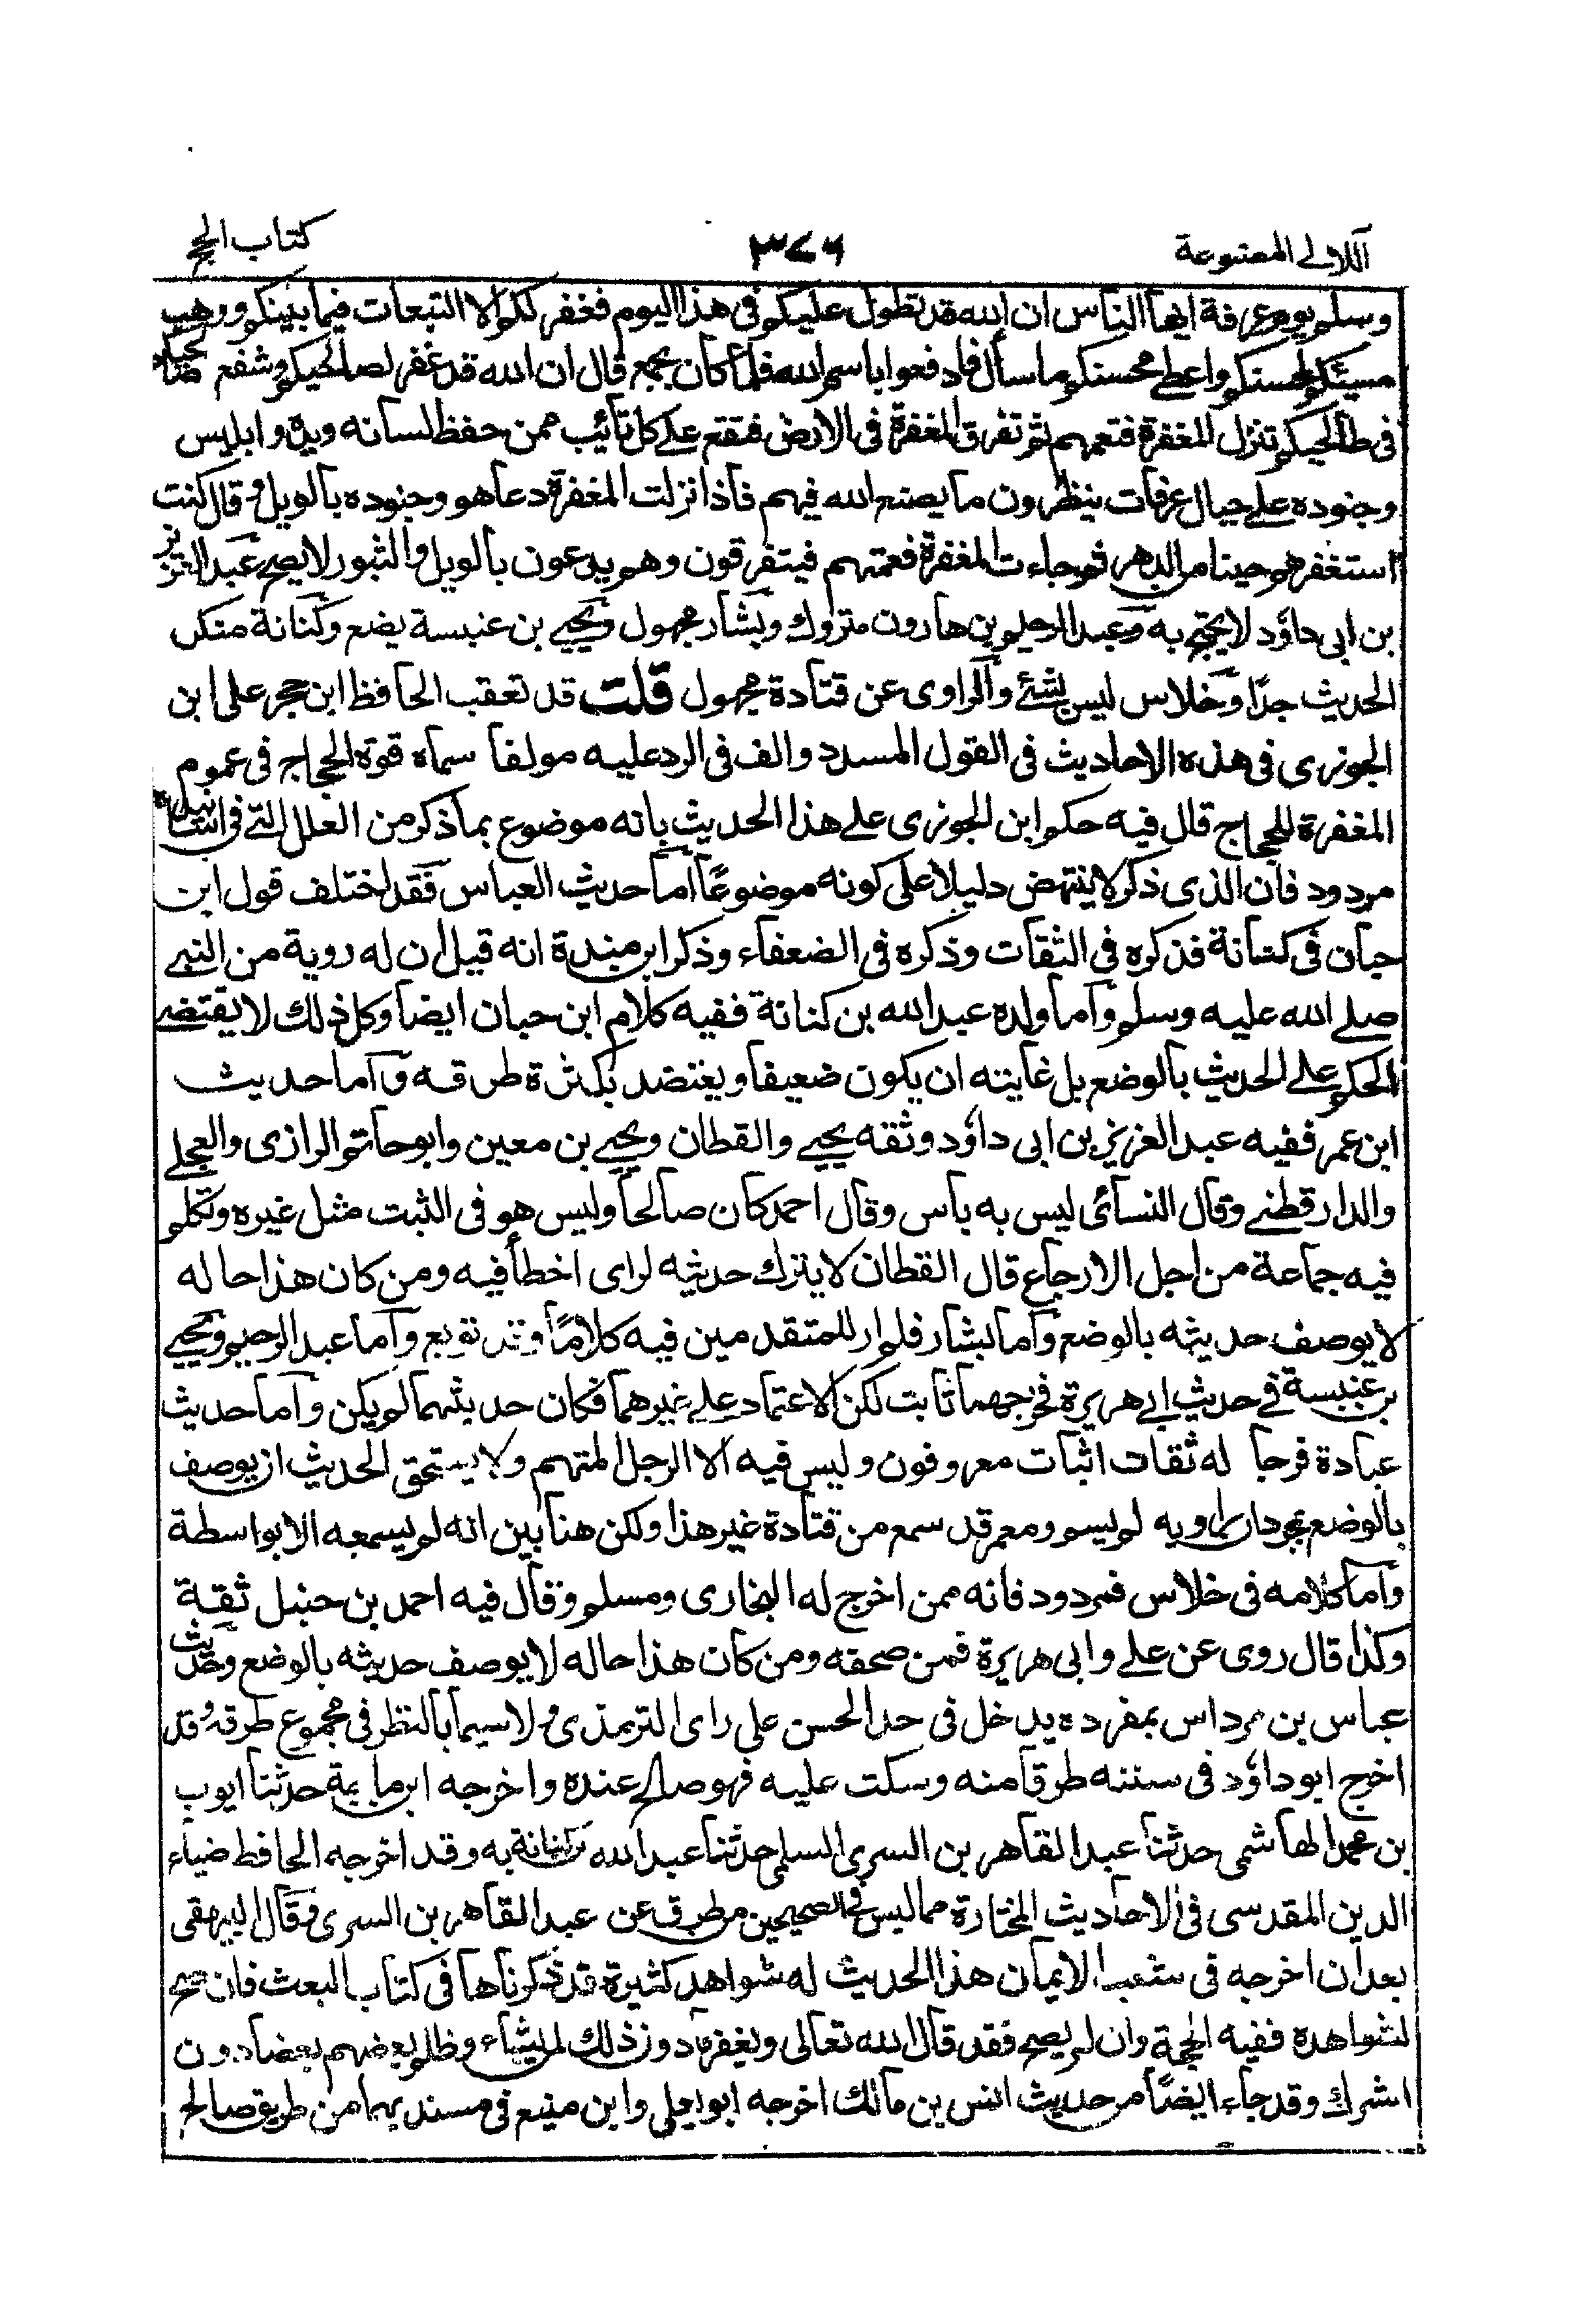 اللالى المصنوعة
٣٧٦
كتاب الحج
وسلم يوم عرفة ايها الناس ان الله قد تطول عليكم فى هذا اليوم فغفر لكم الا التبعات فيما بينكم ووهب
مسيئكم لمحسنكم واعطى محسنكم ما سأل فادفعوا باسم الله فلما كان بجمع قال ان الله قد غفر لصالحيكم وشفع صالحيكم
فى طالحيكم تنزل المغفرة فتعمهم ثم تفرق المغفرة فى الارض فتقع على كل تائب ممن حفظ لسانه ويده وابليس
وجنوده على جبال عرفات ينظرون ما يصنع الله فيهم فاذا نزلت المغفرة دعا هو وجنوده بالويل وقال كنت
استفزهم حينا من الدهر ثم جاءت المغفرة فعمتهم فيتفرقون وهم يدعون بالويل والثبور لا يصح عبد العزيز
بن ابى داؤد لا يحتج به وعبد الرحيم بن هارون متروك وبشار مجهول ويحيى بن عنبسة يضع وكنانة منكر
الحديث جدًا وخلاس ليس بشئ والراوى عن قتادة مجهول قلت قد تعقب الحافظ ابن حجر على ابن
الجوزى فى هذه الاحاديث فى القول المسدد والف فى الرد عليه مولفا سماه قوة الحجاج فى عموم
المغفرة للحجاج قال فيه حكم ابن الجوزى على هذا الحديث بانه موضوع بما ذكر من العلل التى فى اسانيده
مردود فان الذى ذكر لا ينتهض دليلا على كونه موضوعًا اما حديث العباس فقد اختلف قول ابن
حبان فى كنانة فذكره فى الثقات وذكره فى الضعفاء وذكر ابن مندة انه قيل ان له روية من النبى
صلى الله عليه وسلم واما ولده عبد الله بن كنانة ففيه كلام ابن حبان ايضا وكل ذلك لا يقتضى
الحكم على الحديث بالوضع بل غايته ان يكون ضعيفا ويعتضد بكثرة طرقه واما حديث
ابن عمر ففيه عبد العزيز بن ابى داؤد وثقه يحيى والقطان ويحيى بن معين وابو حاتم الرازى والعجلى
والدارقطنى وقال النسائى ليس به باس وقال احمد كان صالحا وليس هو فى الثبت مثل غيره وتكلم
فيه جماعة من اجل الارجاع قال القطان لا يترك حديثه لراى اخطأ فيه ومن كان هذا حاله
لا يوصف حديثه بالوضع واما بشار فلم ار للمتقدمين فيه كلامًا وقد توبع واما عبد الرحيم ويحيى
بن عنبسة فى حديث ابى هريرة فجرحهما ثابت لكن الاعتماد على غيرهما فكان حديثهما لم يكن واما حديث
عبادة فرجا له ثقات اثبات معروفون وليس فيه الا الرجل المتهم ولا يستحق الحديث ان يوصف
بالوضع بمجرد ان راويه لم يسم ومعمر قد سمع من قتادة غير هذا ولكن هنا بين انه لم يسمعه الا بواسطة
واما كلامه فى خلاس فمردود فانه ممن اخرج له البخارى ومسلم وقال فيه احمد بن حنبل ثقة
وكذا قال روى عن على وابى هريرة فمن صحفه ومن كان هذا حاله لا يوصف حديثه بالوضع وحديث
عباس بن مرداس بمفرده يدخل فى حد الحسن على راى الترمذى ولا سيما بالنظر فى مجموع طرقه وقد
اخرج ابو داؤد فى سننه طرقا منه وسكت عليه فهو صالح عنده واخرجه ابن ماجة حدثنا ايوب
بن محمد الهاشمى حدثنا عبد القاهر بن السرى السلمى حدثنا عبد الله بن كنانة به وقد اخرجه الحافظ ضياء
الدين المقدسى فى الاحاديث المختارة مما ليس فى الصحيحين من طرق عن عبد القاهر بن السرى وقال البيهقى
بعد ان اخرجه فى شعب الايمان هذا الحديث له شواهد كثيرة قد ذكرناها فى كتاب البعث فان صح
لشواهده ففيه الحجة وان لم يصح فقد قال الله تعالى ويغفر ما دون ذلك لمن يشاء وظلم بعضهم بعضا دون
اشراك وقد جاء ايضًا من حديث انس بن مالك اخرجه ابو يعلى وابن منيع فى مسنديهما من طريق صالح